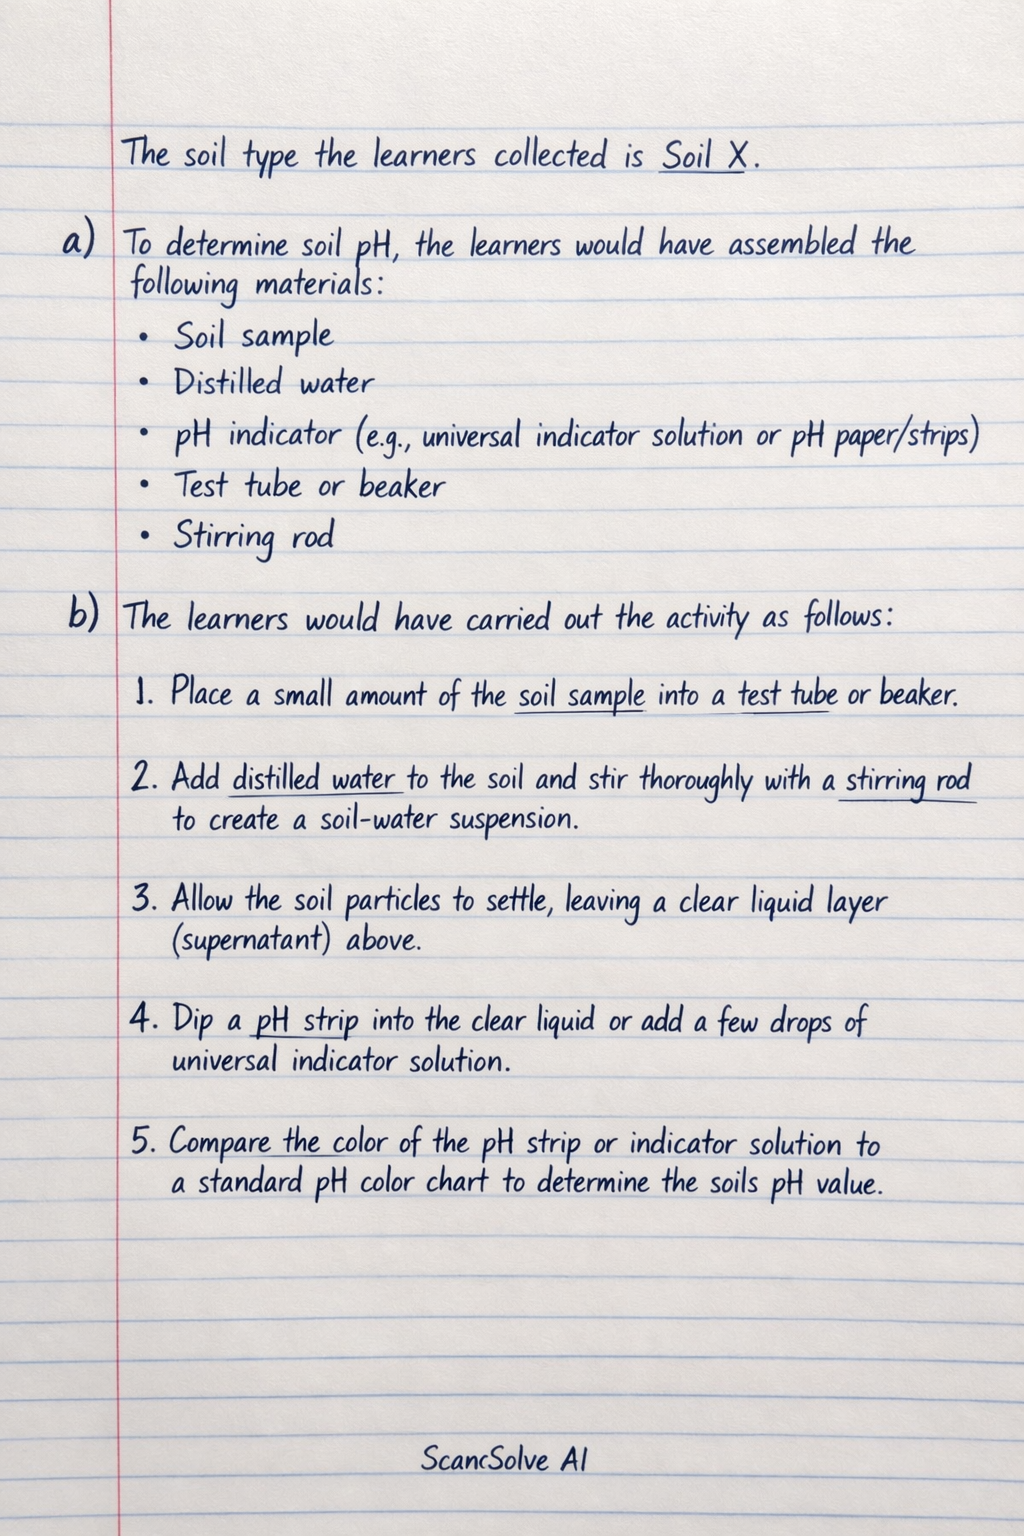 The soil type the learners collected is Soil X.
a) To determine soil pH, the learners would have assembled the
following materials:
• Soil sample
• Distilled water
• pH indicator (e.g., universal indicator solution or pH paper/strips)
• Test tube or beaker
• Stirring rod
b) The learners would have carried out the activity as follows:
1. Place a small amount of the soil sample into a test tube or beaker.
2. Add distilled water to the soil and stir thoroughly with a stirring rod
to create a soil-water suspension.
3. Allow the soil particles to settle, leaving a clear liquid layer
(supernatant) above.
4. Dip a pH strip into the clear liquid or add a few drops of
universal indicator solution.
5. Compare the color of the pH strip or indicator solution to
a standard pH color chart to determine the soils pH value.
ScancSolve AI